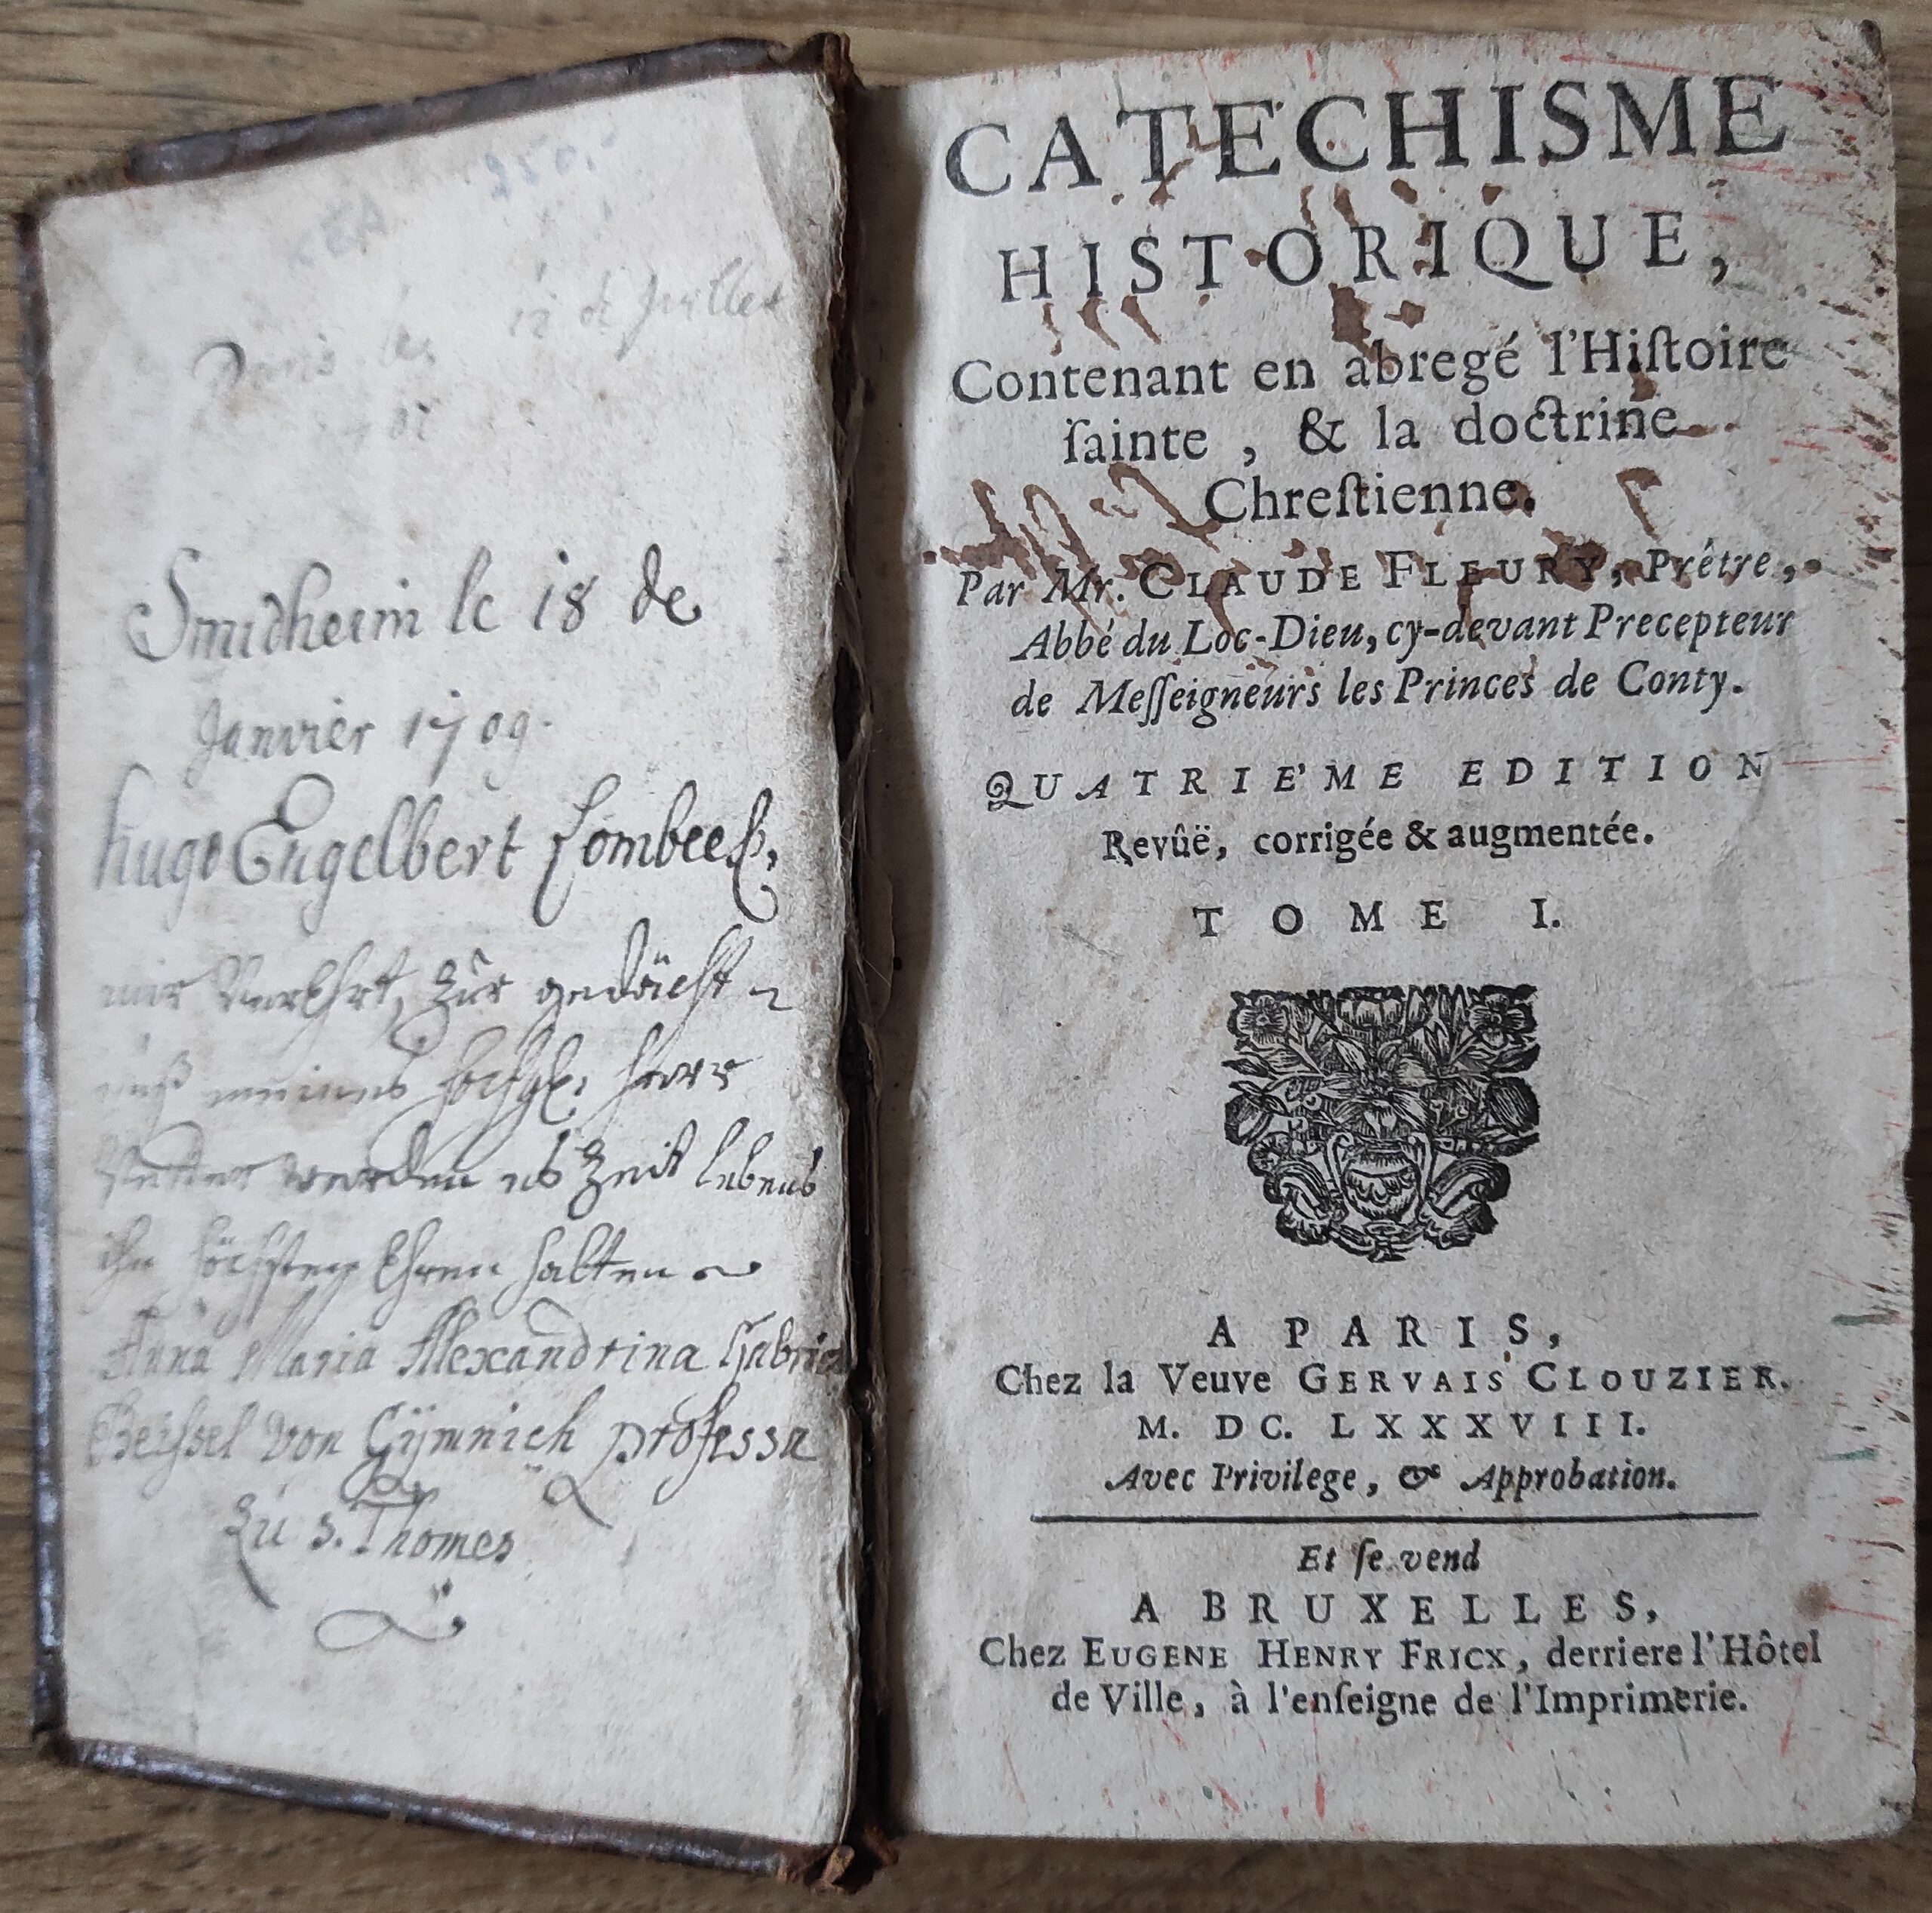 250.-
Paris le 12 de Juillet
Smidheim le 18 de
Janvier 1709.
hugo Engelbert
mir Verehrt, zur gedächt-
nuß meines hochgl. herr
Vetter werden es Zeit lebens
ihn höchsten Ehren halten
Anna Maria Alexandrina Gabriel
Beissel von Gÿmnich professa
zu s. Thomes
CATECHISME
HISTORIQUE,
Contenant en abregé l'Hiſtoire
ſainte, & la doctrine
Chreſtienne.
Par Mr. CLAUDE FLEURY, Prêtre,
Abbé du Loc-Dieu, cy-devant Precepteur
de Meſſeigneurs les Princes de Conty.
QUATRIE'ME EDITION
Revûë, corrigée & augmentée.
TOME I.
A PARIS,
Chez la Veuve GERVAIS CLOUZIER.
M. DC. LXXXVIII.
Avec Privilege, & Approbation.
Et ſe vend
A BRUXELLES,
Chez EUGENE HENRY FRICX, derriere l'Hôtel
de Ville, à l'enſeigne de l'Imprimerie.